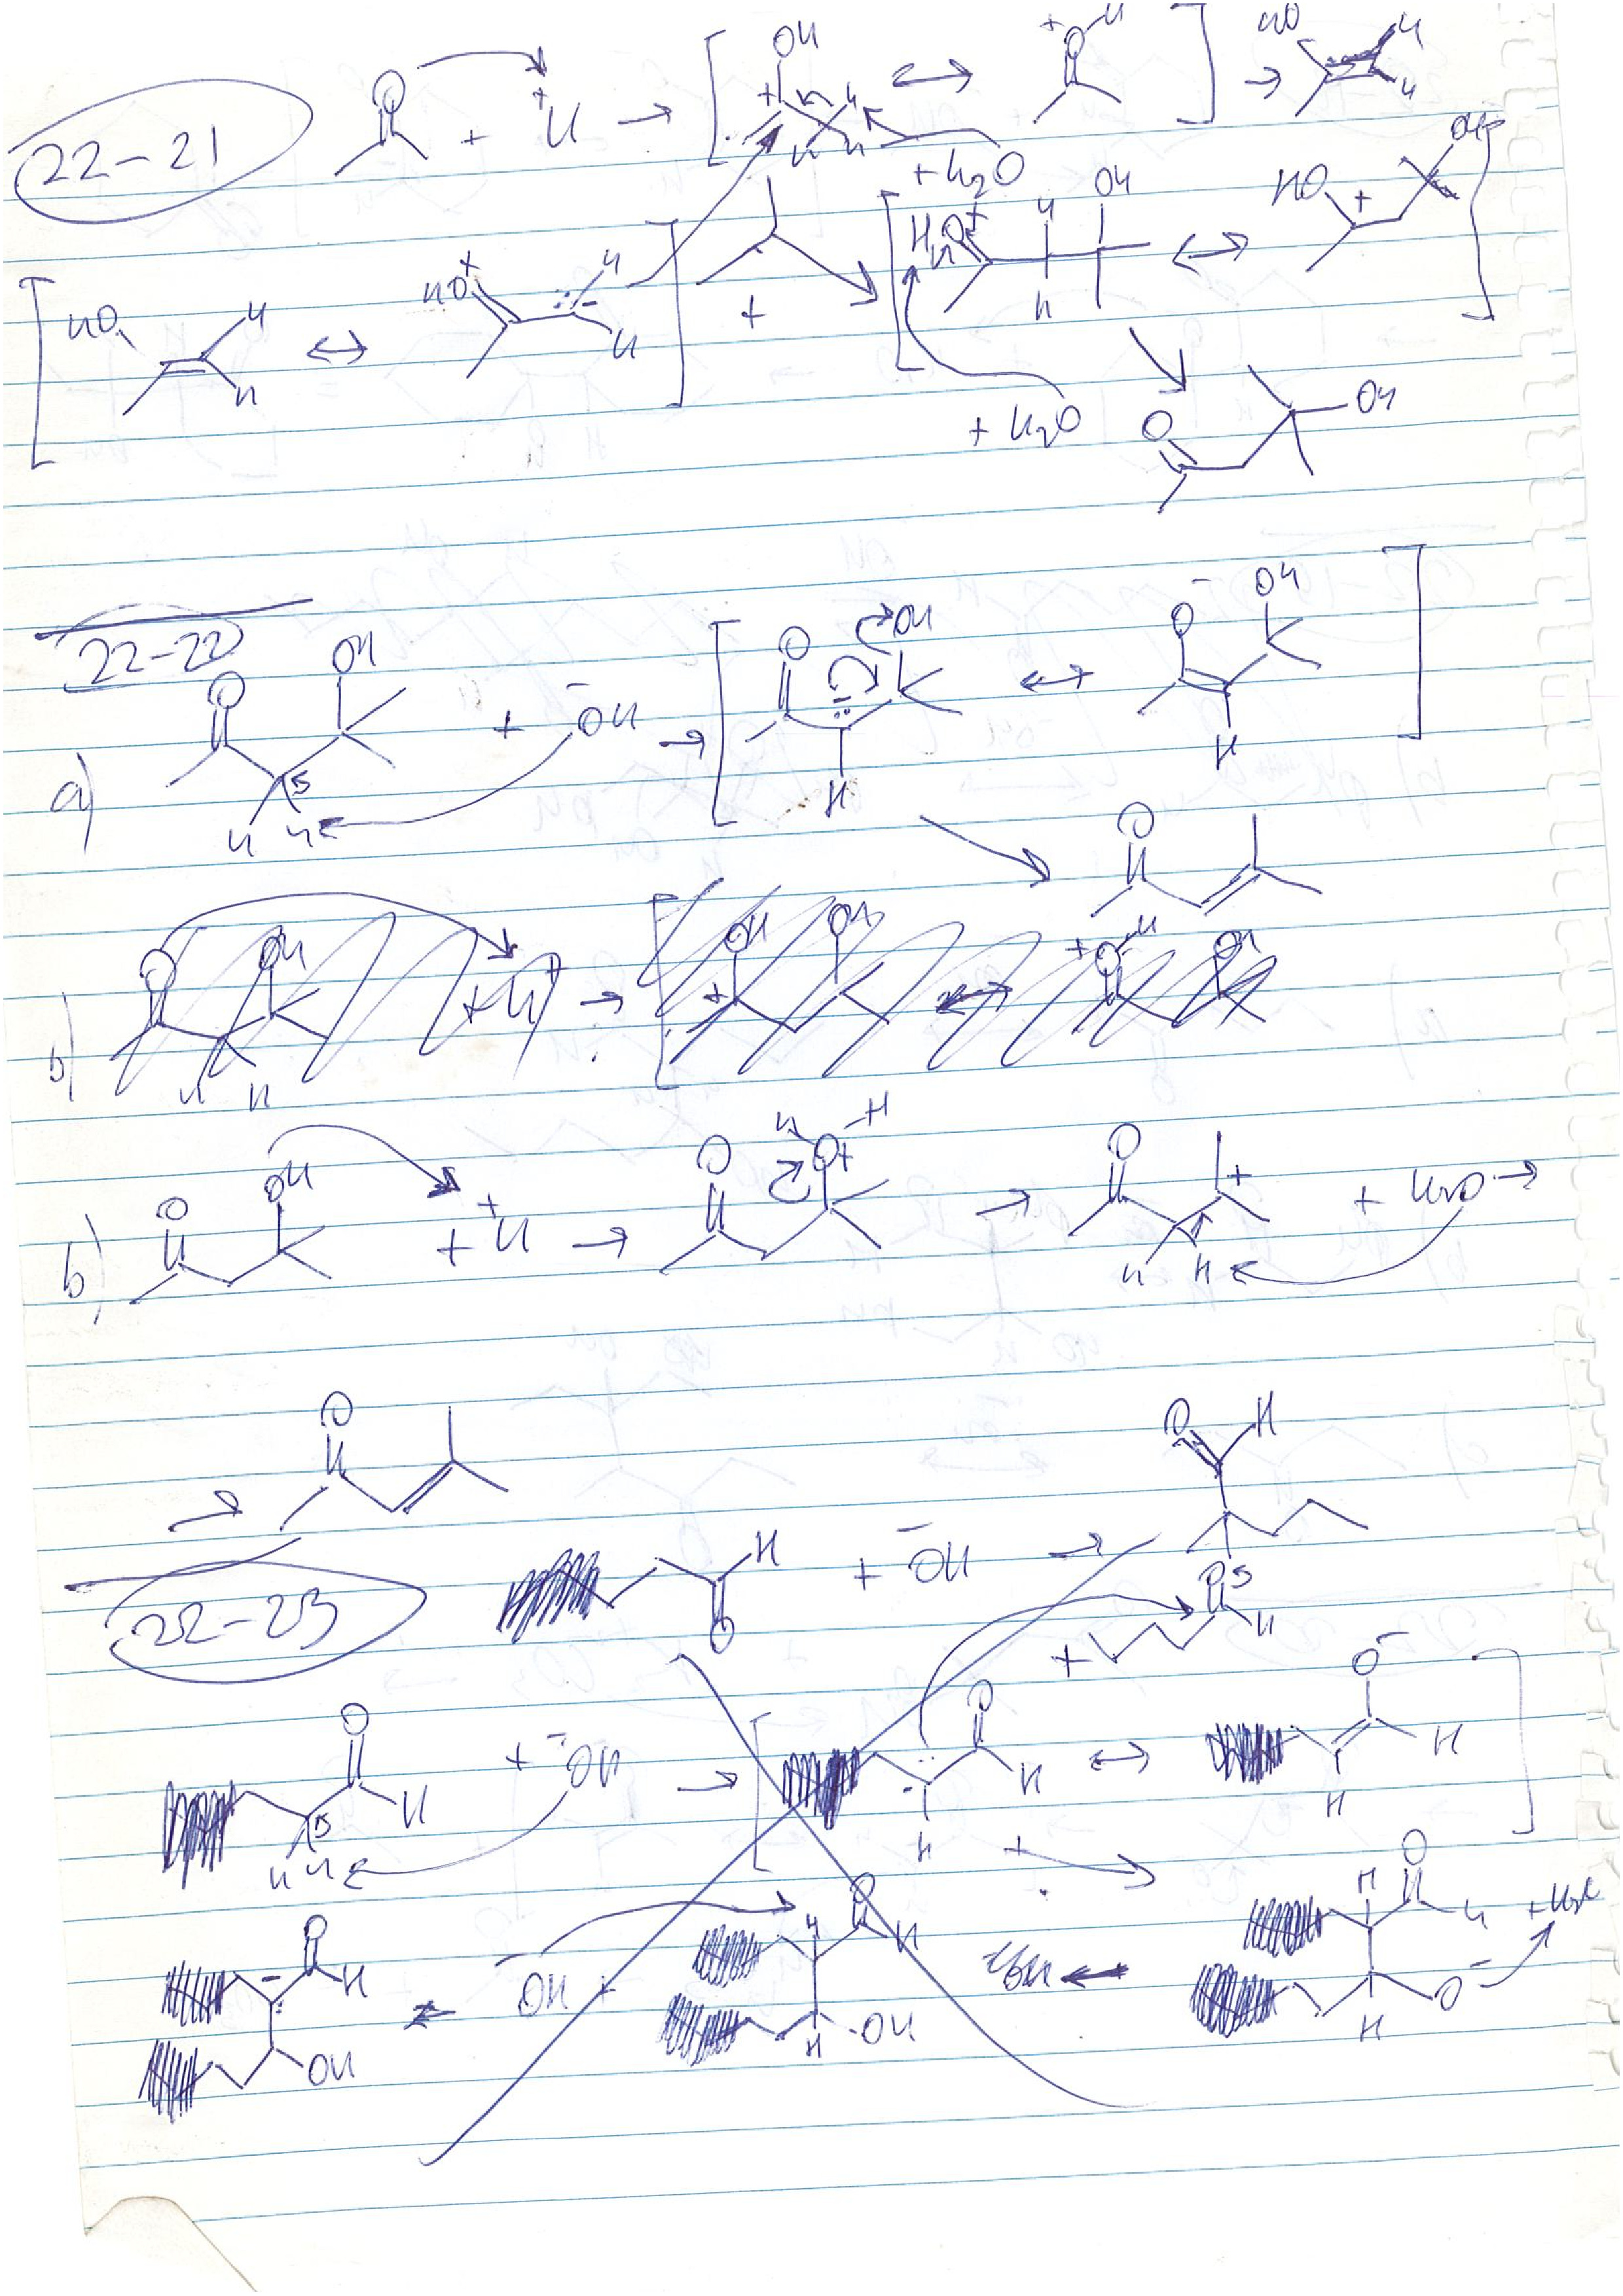 22-21
O + +H → [ OH + ↔ +O-H ] → HO H H
+H2O
[ HO H H ↔ HO+ H H ] + [ HO+ H H OH ↔ HO + OH ]
+ H2O
O OH
22-22
a) O OH H H + -OH → [ O OH H ↔ O- OH H ]
O
b) O OH H H + H+ → [ OH OH + ↔ +O-H OH
b) O OH + +H → O H O+ -H → O + H H + H2O →
→ O
22-23
H O + -OH → O H
+ O H
O H H H + -OH → [ O H H ↔ O- H H ]
+
O H OH ← -OH + H O H H OH ← H O H O- H + H2O